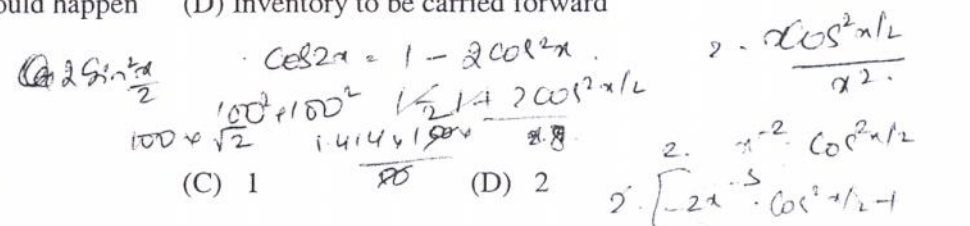 ould happen (D) Inventory to be carried forward
2 Sin²x/2 . Cos2x = 1 - 2cos²x . 2 . xcos²x/2 / x² .
100² + 100² 2cos²x/2
100 × √2 1.414 × 100
2. x⁻² cos²x/2
(C) 1 (D) 2 2. [-2x⁻³ . Cos²x/2 -1